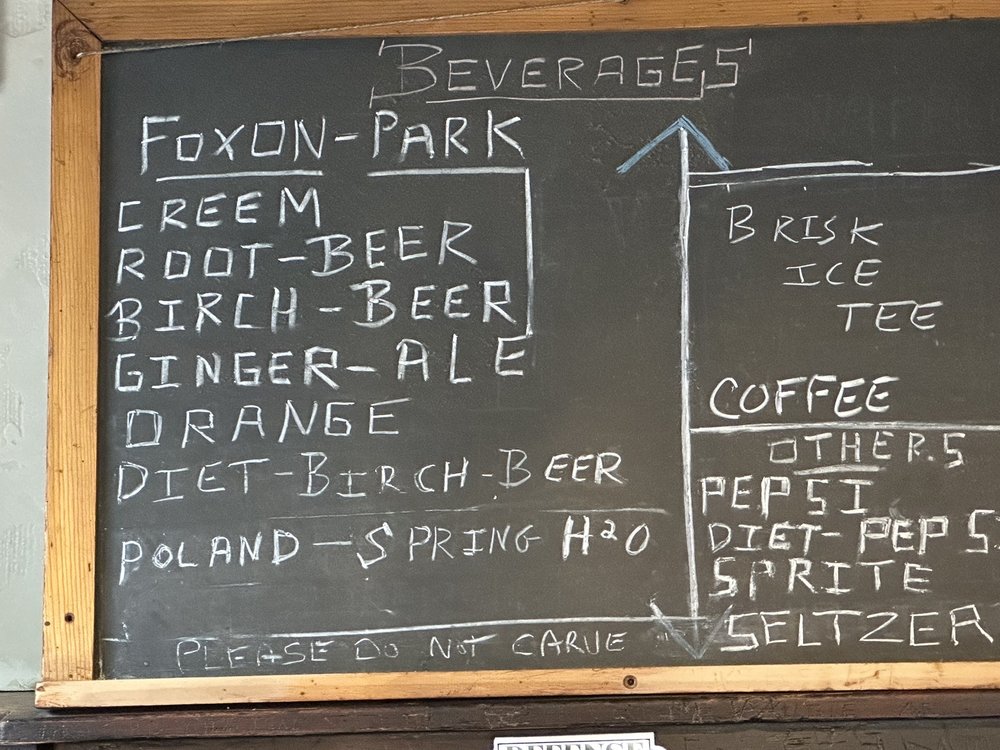 BEVERAGES
FOXON-PARK
CREEM
ROOT-BEER
BIRCH-BEER
GINGER-ALE
ORANGE
DIET-BIRCH-BEER
POLAND-SPRING H2O
PLEASE DO NOT CARVE
BRISK
ICE
TEE
COFFEE
OTHERS
PEPSI
DIET-PEPSI
SPRITE
SELTZER
DEFENSE